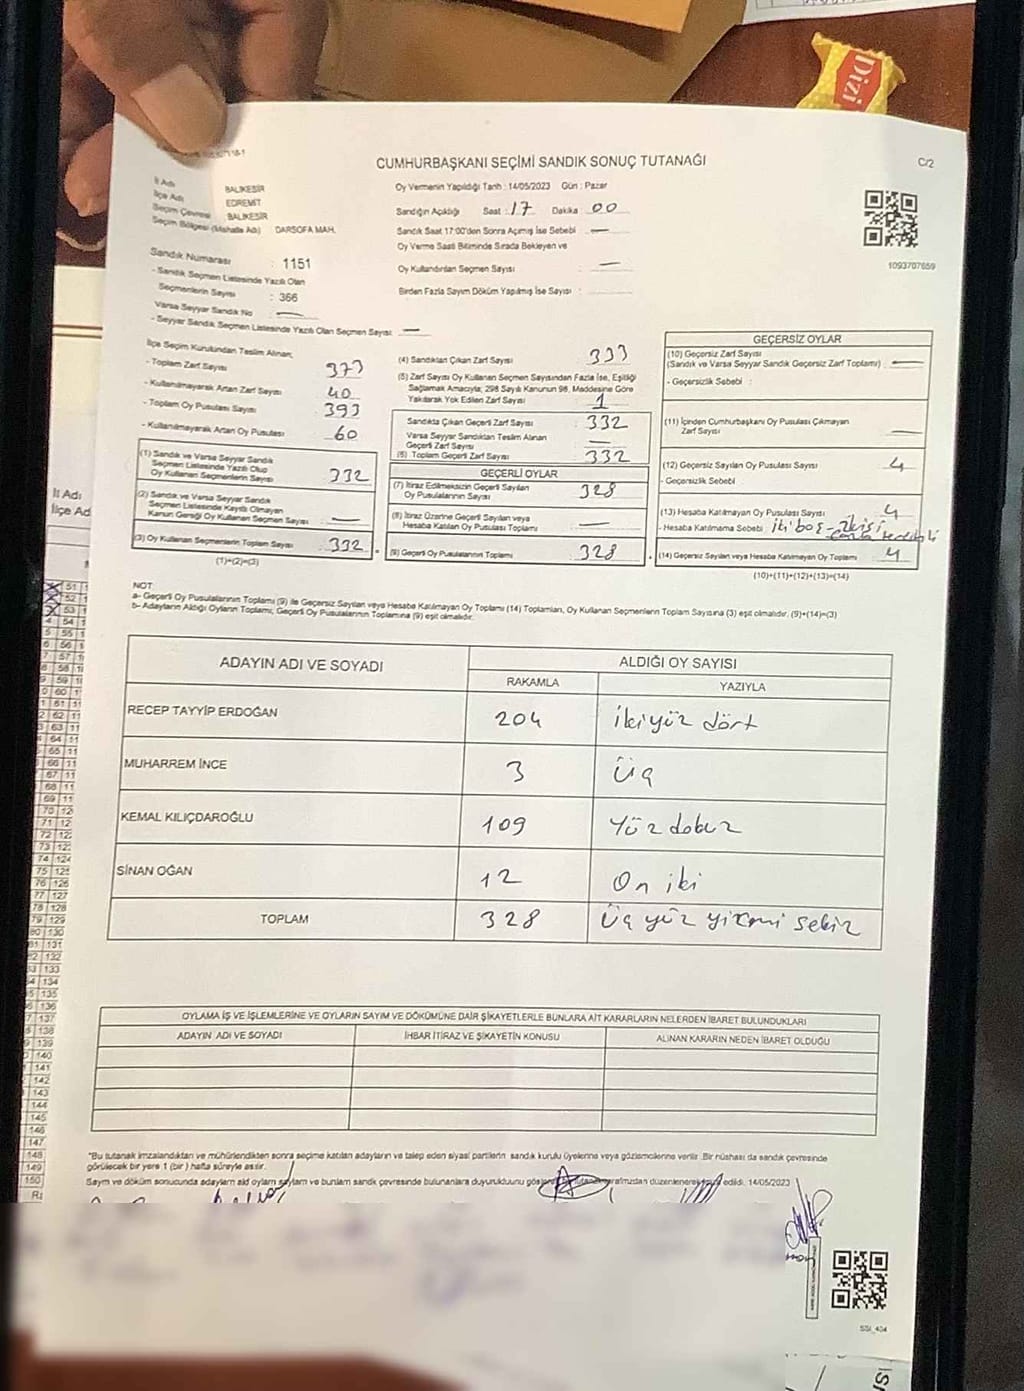 Dizi
CUMHURBAŞKANI SEÇİMİ SANDIK SONUÇ TUTANAĞI
C/2
İl Adı BALIKESİR
İlçe Adı EDREMİT
Seçim Çevresi BALIKESİR
Seçim Bölgesi (Mahalle Adı) DARSOFA MAH.
Sandık Numarası : 1151
- Sandık Seçmen Listesinde Yazılı Olan
Seçmenlerin Sayısı : 366
Varsa Seyyar Sandık No —
- Seyyar Sandık Seçmen Listesinde Yazılı Olan Seçmen Sayısı —
Oy Vermenin Yapıldığı Tarih : 14/05/2023 Gün : Pazar
Sandığın Açıldığı Saat : 17 Dakika 00
Sandık Saat 17:00'den Sonra Açımış İse Sebebi —
Oy Verme Saati Bitiminde Sırada Bekleyen ve
Oy Kullandırılan Seçmen Sayısı : —
Birden Fazla Sayım Döküm Yapılmış İse Sayısı :
1093707659
İlçe Seçim Kurulundan Teslim Alınan;
- Toplam Zarf Sayısı 373
- Kullanılmayarak Artan Zarf Sayısı 40
- Toplam Oy Pusulası Sayısı 393
- Kullanılmayarak Artan Oy Pusulası 60
(1) Sandık ve Varsa Seyyar Sandık
Seçmen Listesinde Yazılı Olup
Oy Kullanan Seçmenlerin Sayısı 332
(2) Sandık ve Varsa Seyyar Sandık
Seçmen Listesinde Kayıtlı Olmayan
Kanun Gereği Oy Kullanan Seçmen Sayısı —
(3) Oy Kullanan Seçmenlerin Toplam Sayısı 332
(1)+(2)=(3)
(4) Sandıktan Çıkan Zarf Sayısı 333
(5) Zarf Sayısı Oy Kullanan Seçmen Sayısından Fazla İse, Eşitliği
Sağlamak Amacıyla; 298 Sayılı Kanunun 98. Maddesine Göre
Yakılarak Yok Edilen Zarf Sayısı 1
Sandıkta Çıkan Geçerli Zarf Sayısı : 332
Varsa Seyyar Sandıktan Teslim Alınan
Geçerli Zarf Sayısı —
(6) Toplam Geçerli Zarf Sayısı 332
GEÇERLİ OYLAR
(7) İtiraz Edilmeksizin Geçerli Sayılan
Oy Pusulalarının Sayısı 328
(8) İtiraz Üzerine Geçerli Sayılan veya
Hesaba Katılan Oy Pusulası Toplamı —
(9) Geçerli Oy Pusulalarının Toplamı 328
GEÇERSİZ OYLAR
(10) Geçersiz Zarf Sayısı
(Sandık ve Varsa Seyyar Sandık Geçersiz Zarf Toplamı) —
- Geçersizlik Sebebi :
(11) İçinden Cumhurbaşkanı Oy Pusulası Çıkmayan
Zarf Sayısı —
(12) Geçersiz Sayılan Oy Pusulası Sayısı 4
- Geçersizlik Sebebi
(13) Hesaba Katılmayan Oy Pusulası Sayısı 4
- Hesaba Katılmama Sebebi : iki boş - ikisi
(14) Geçersiz Sayılan veya Hesaba Katılmayan Oy Toplamı 4
(10)+(11)+(12)+(13)=(14)
NOT
a- Geçerli Oy Pusulalarının Toplamı (9) ile Geçersiz Sayılan veya Hesaba Katılmayan Oy Toplamı (14) Toplamları, Oy Kullanan Seçmenlerin Toplam Sayısına (3) eşit olmalıdır. (9)+(14)=(3)
b- Adayların Aldığı Oyların Toplamı, Geçerli Oy Pusulalarının Toplamına (9) eşit olmalıdır.
ADAYIN ADI VE SOYADI ALDIĞI OY SAYISI
RAKAMLA YAZIYLA
RECEP TAYYİP ERDOĞAN 204 ikiyüz dört
MUHARREM İNCE 3 üç
KEMAL KILIÇDAROĞLU 109 Yüz dokuz
SİNAN OĞAN 12 On iki
TOPLAM 328 Üç yüz yirmi sekiz
OYLAMA İŞ VE İŞLEMLERİNE VE OYLARIN SAYIM VE DÖKÜMÜNE DAİR ŞİKAYETLERLE BUNLARA AİT KARARLARIN NELERDEN İBARET BULUNDUKLARI
ADAYIN ADI VE SOYADI İHBAR İTİRAZ VE ŞİKAYETİN KONUSU ALINAN KARARIN NEDEN İBARET OLDUĞU
*Bu tutanak imzalandıktan ve mühürlendikten sonra seçime katılan adayların ve talep eden siyasi partilerin sandık kurulu üyelerine veya gözlemcilerine verilir. Bir nüshası da sandık çevresinde
görülecek bir yere 1 (bir) hafta süreyle asılır.
Sayım ve döküm sonucunda adayların aldığı oyların sayısını ve bunların sandık çevresinde bulunanlara duyurulduğunu tarafımızdan düzenlenerek edildi. 14/05/2023
SSI_404
İl Adı
İlçe Ad